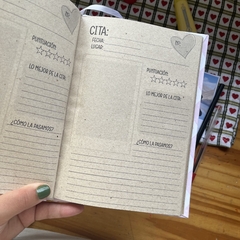 PUNTUACIÓN
LO MEJOR DE LA CITA:
¿CÓMO LA PASAMOS?
CITA:
FECHA:
LUGAR:
Nº
PUNTUACIÓN
LO MEJOR DE LA CITA:
¿CÓMO LA PASAMOS?